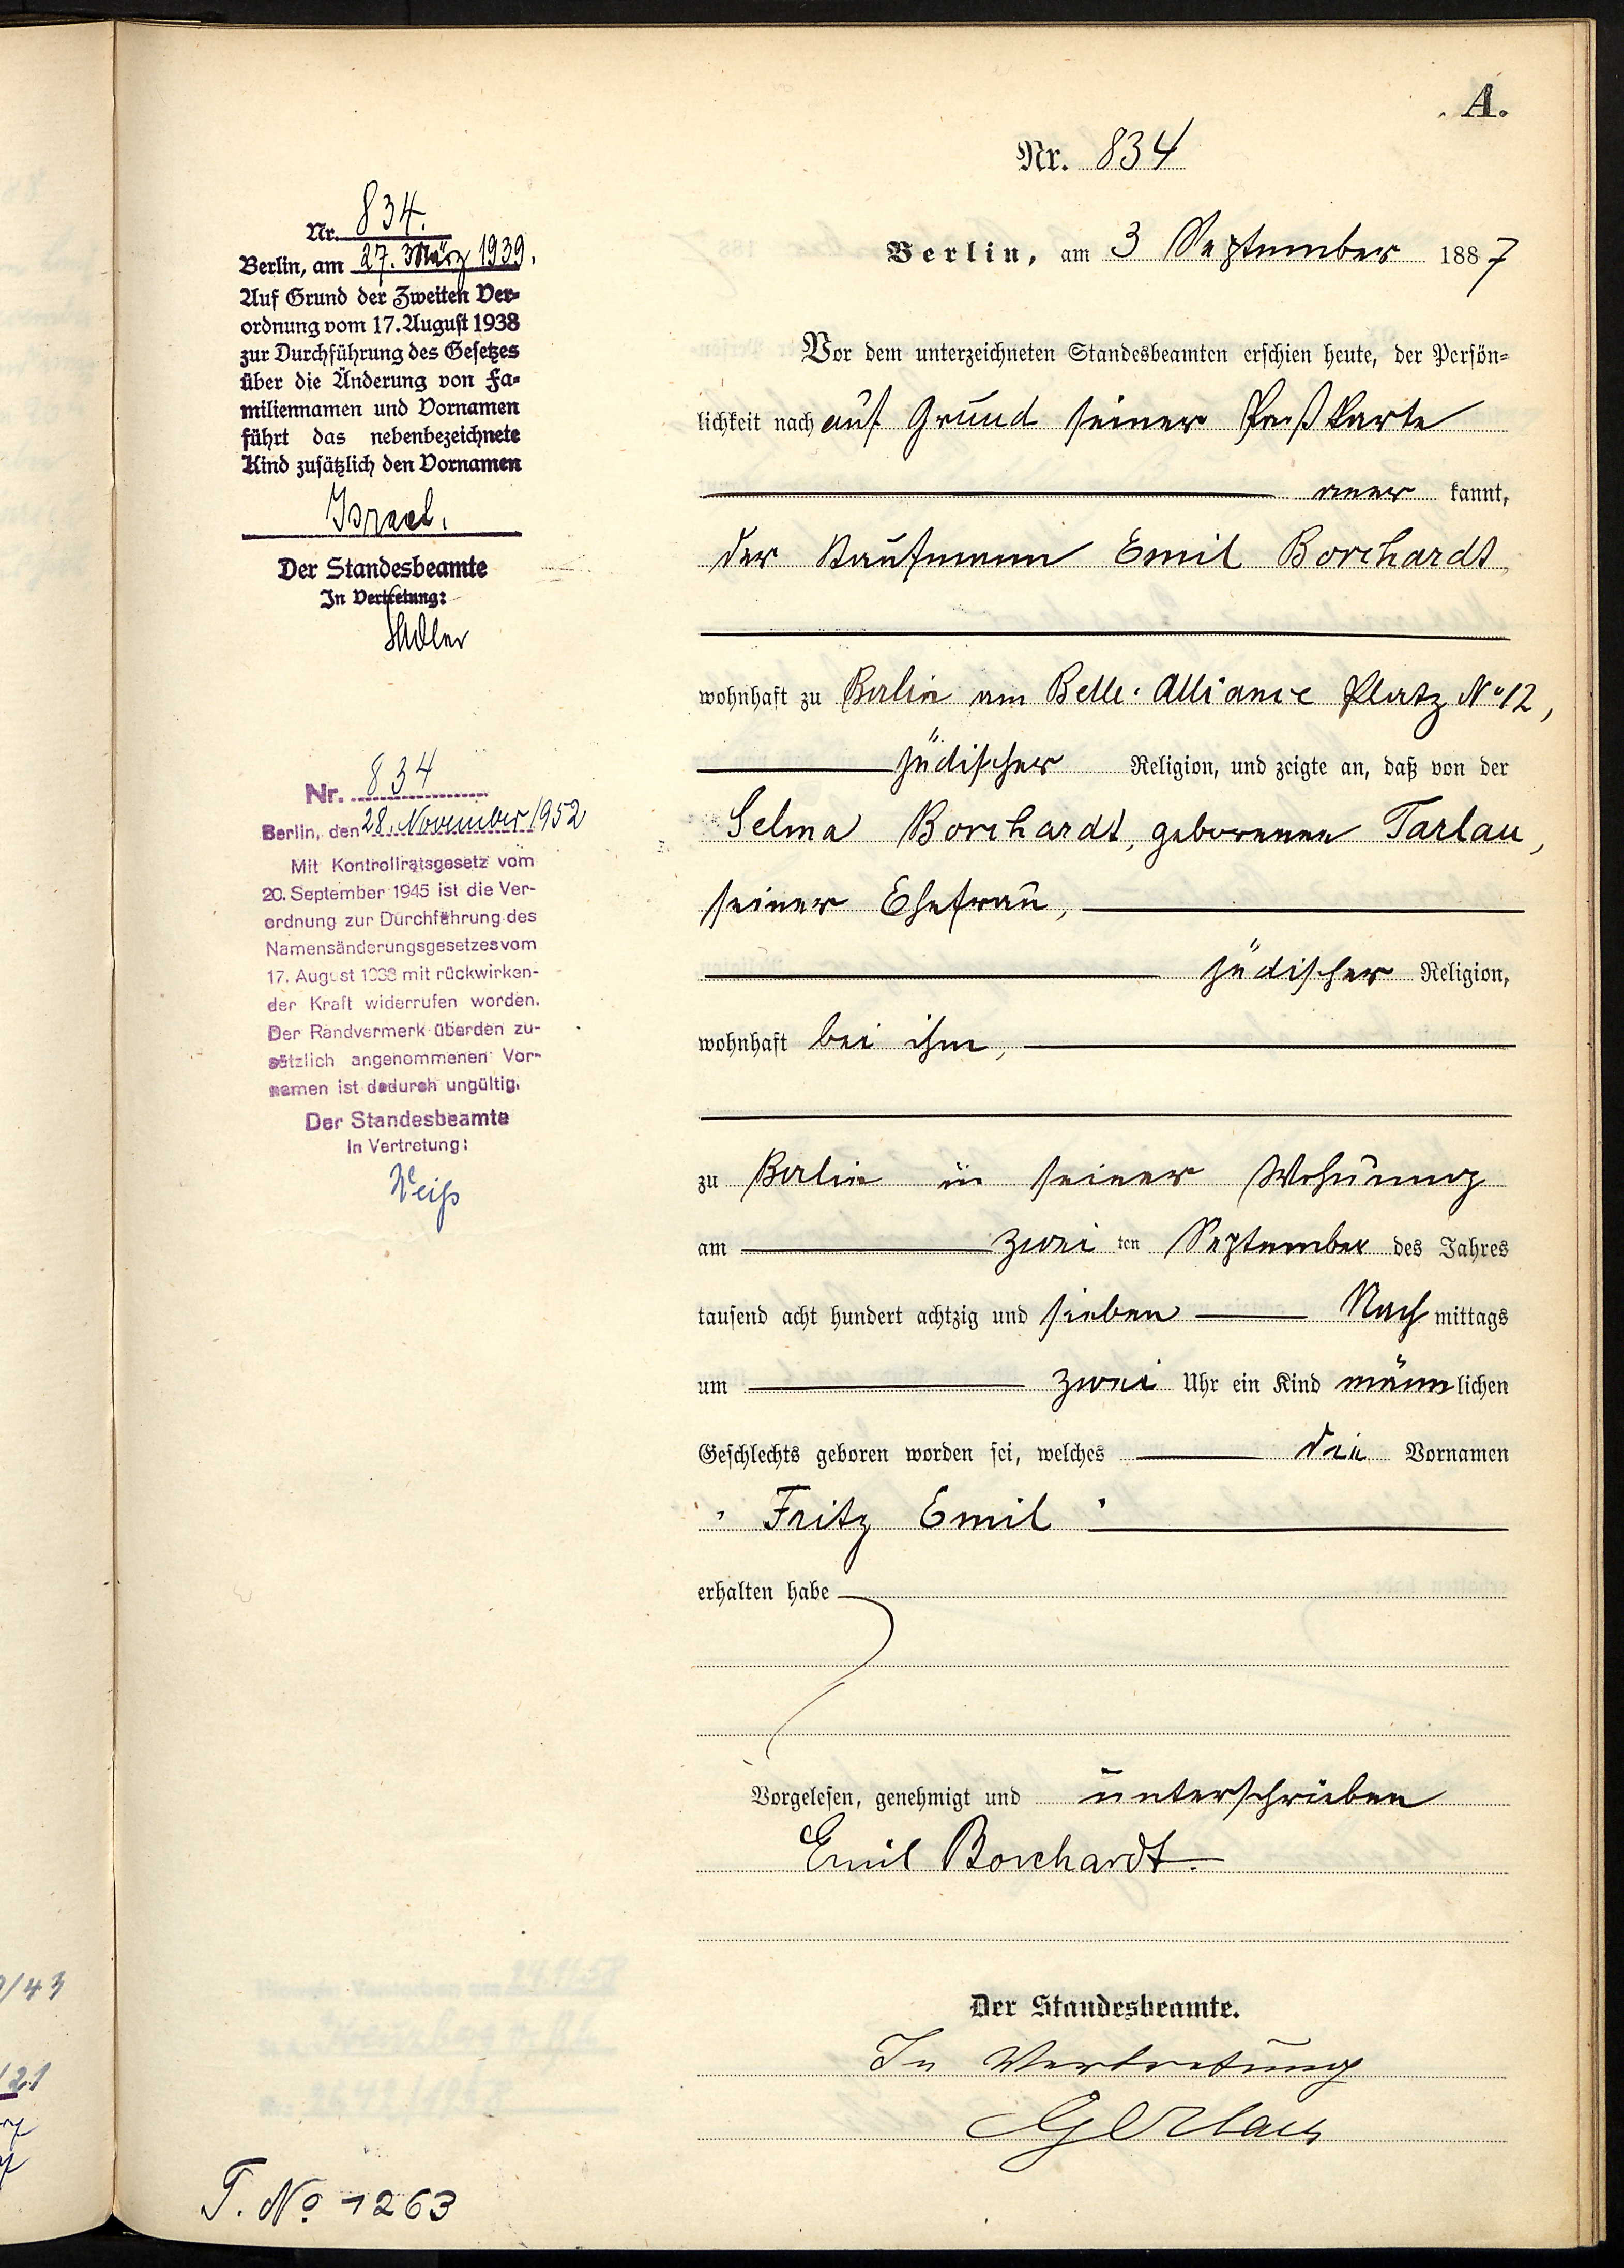 A.
Nr. 834
Berlin, am 3 September 1887
Vor dem unterzeichneten Standesbeamten erschien heute, der Persön-
lichkeit nach auf Grund seiner Paßkarte
aner kannt,
der Kaufmann Emil Borchardt
wohnhaft zu Berlin am Belle-Alliance Platz No 12,
jüdischer Religion, und zeigte an, daß von der
Selma Borchardt, geborenen Tarlau,
seiner Ehefrau,
jüdischer Religion,
wohnhaft bei ihm,
zu Berlin in seiner Wohnung
am zwei ten September des Jahres
tausend acht hundert achtzig und sieben Nach mittags
um zwei Uhr ein Kind männlichen
Geschlechts geboren worden sei, welches die Vornamen
" Fritz Emil "
erhalten habe
Vorgelesen, genehmigt und unterschrieben
Emil Borchardt.
Der Standesbeamte.
In Vertretung
Nr. 834.
Berlin, am 27. März 1939.
Auf Grund der Zweiten Ver-
ordnung vom 17. August 1938
zur Durchführung des Gesetzes
über die Änderung von Fa-
miliennamen und Vornamen
führt das nebenbezeichnete
Kind zusätzlich den Vornamen
Israel.
Der Standesbeamte
In Vertretung:
Nr. 834
Berlin, den 28. November 1952
Mit Kontrollratsgesetz vom
20. September 1945 ist die Ver-
ordnung zur Durchführung des
Namensänderungsgesetzes vom
17. August 1938 mit rückwirken-
der Kraft widerrufen worden.
Der Randvermerk über den zu-
sätzlich angenommenen Vor-
namen ist dadurch ungültig.
Der Standesbeamte
In Vertretung:
Weiß
T. No 1263